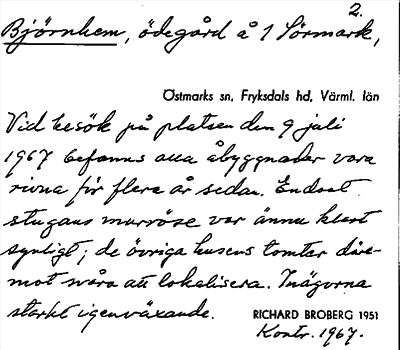 2.
Björnhem, ödegård å 1 Sörmark,
Östmarks sn, Fryksdals hd, Värml. län
Vid besök på platsen den 9 juli
1967 befanns alla åbyggnader vara
rivna för flera år sedan. Endast
stugans murröse var ännu klart
synligt; de övriga husens tomter däre-
mot svåra att lokalisera. Inägorna
starkt igenväxande.
RICHARD BROBERG 1951
Kontr. 1967.